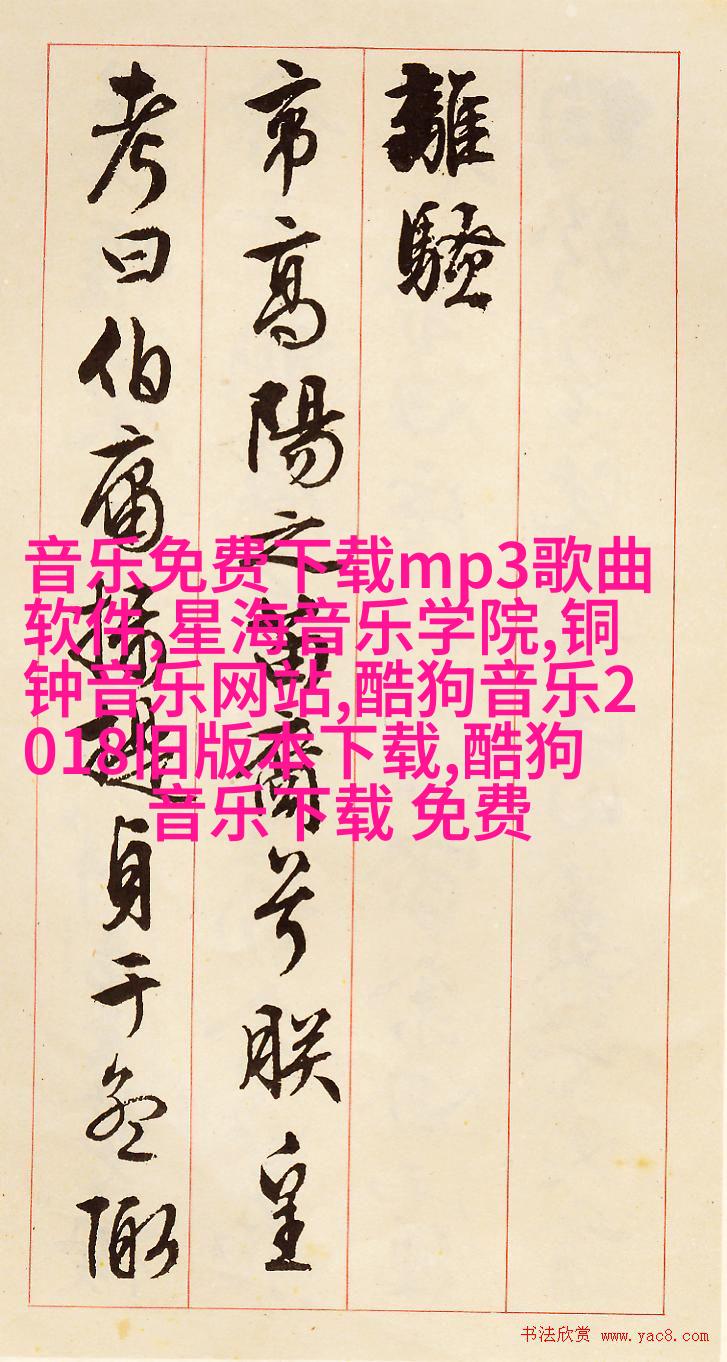 離騷
帝高陽之苗裔兮朕皇
考曰伯庸攝提貞于孟陬
音乐免费下载mp3歌曲
软件,星海音乐学院,铜
钟音乐网站,酷狗音乐2
018旧版本下载,酷狗
音乐下载 免费
书法欣赏 www.yac8.com